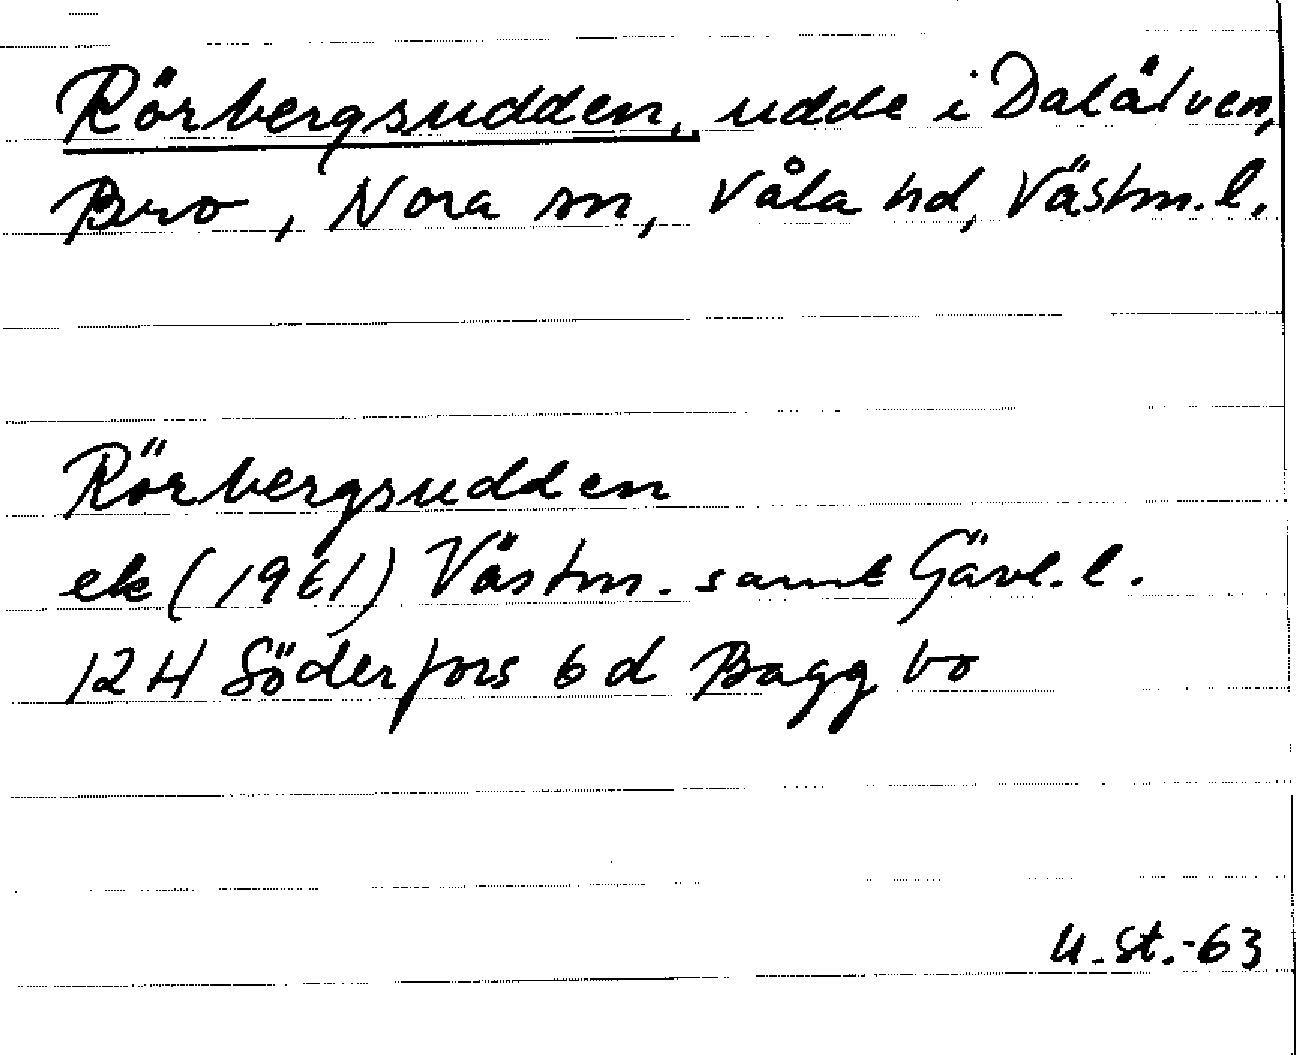 Rörbergsudden, udde i Dalälven,
Bro, Nora sn, Våla hd, Västm. l.
Rörbergsudden
ek (1961) Västm. samt Gävl. l.
12 H Söderfors 6 d Baggbo
U. St. -63